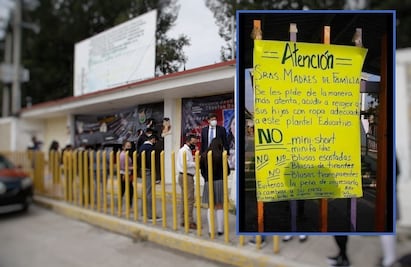 Atención
Sras Madres de Familia
Se les pide de la manera
más atenta, acudir a recoger a
sus hijos con ropa adecuada
a este plantel Educativo.
NO - mini-short
minifaldas
NO NO - Blusas escotadas
- Blusas de tirantes
- Blusas transparentes
Evitenos la pena de regresarla
a cambiar a su casa